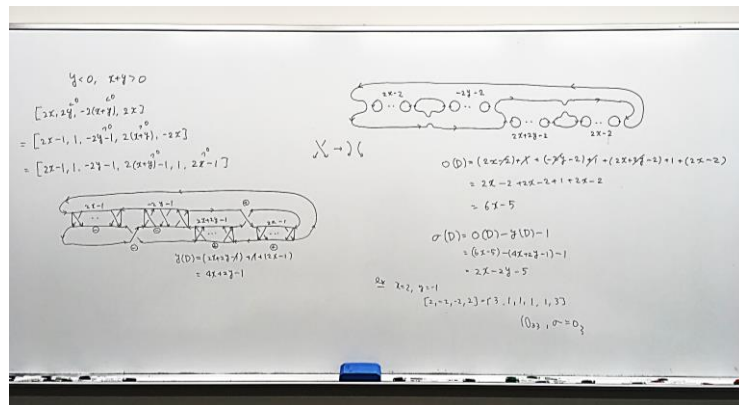 y<0, x+y>0
[2x, 2y, -2(x+y), 2x]
= [2x-1, 1, -2y-1, 2(x+y), -2x]
= [2x-1, 1, -2y-1, 2(x+y)-1, 1, 2x-1]
2x-1
-2y-1
2x+2y-1
2x-1
y(D)=(2x+2y-1)+1+(2x-1)
= 4x+2y-1
2x-2
-2y-2
2x+2y-2
2x-2
O(D)=(2x-2)+1+(-2y-2)+1+(2x+2y-2)+1+(2x-2)
= 2x-2+2x-2+1+2x-2
= 6x-5
σ(D)= O(D)-y(D)-1
=(6x-5)-(4x+2y-1)-1
= 2x-2y-5
Ex x=2, y=-1